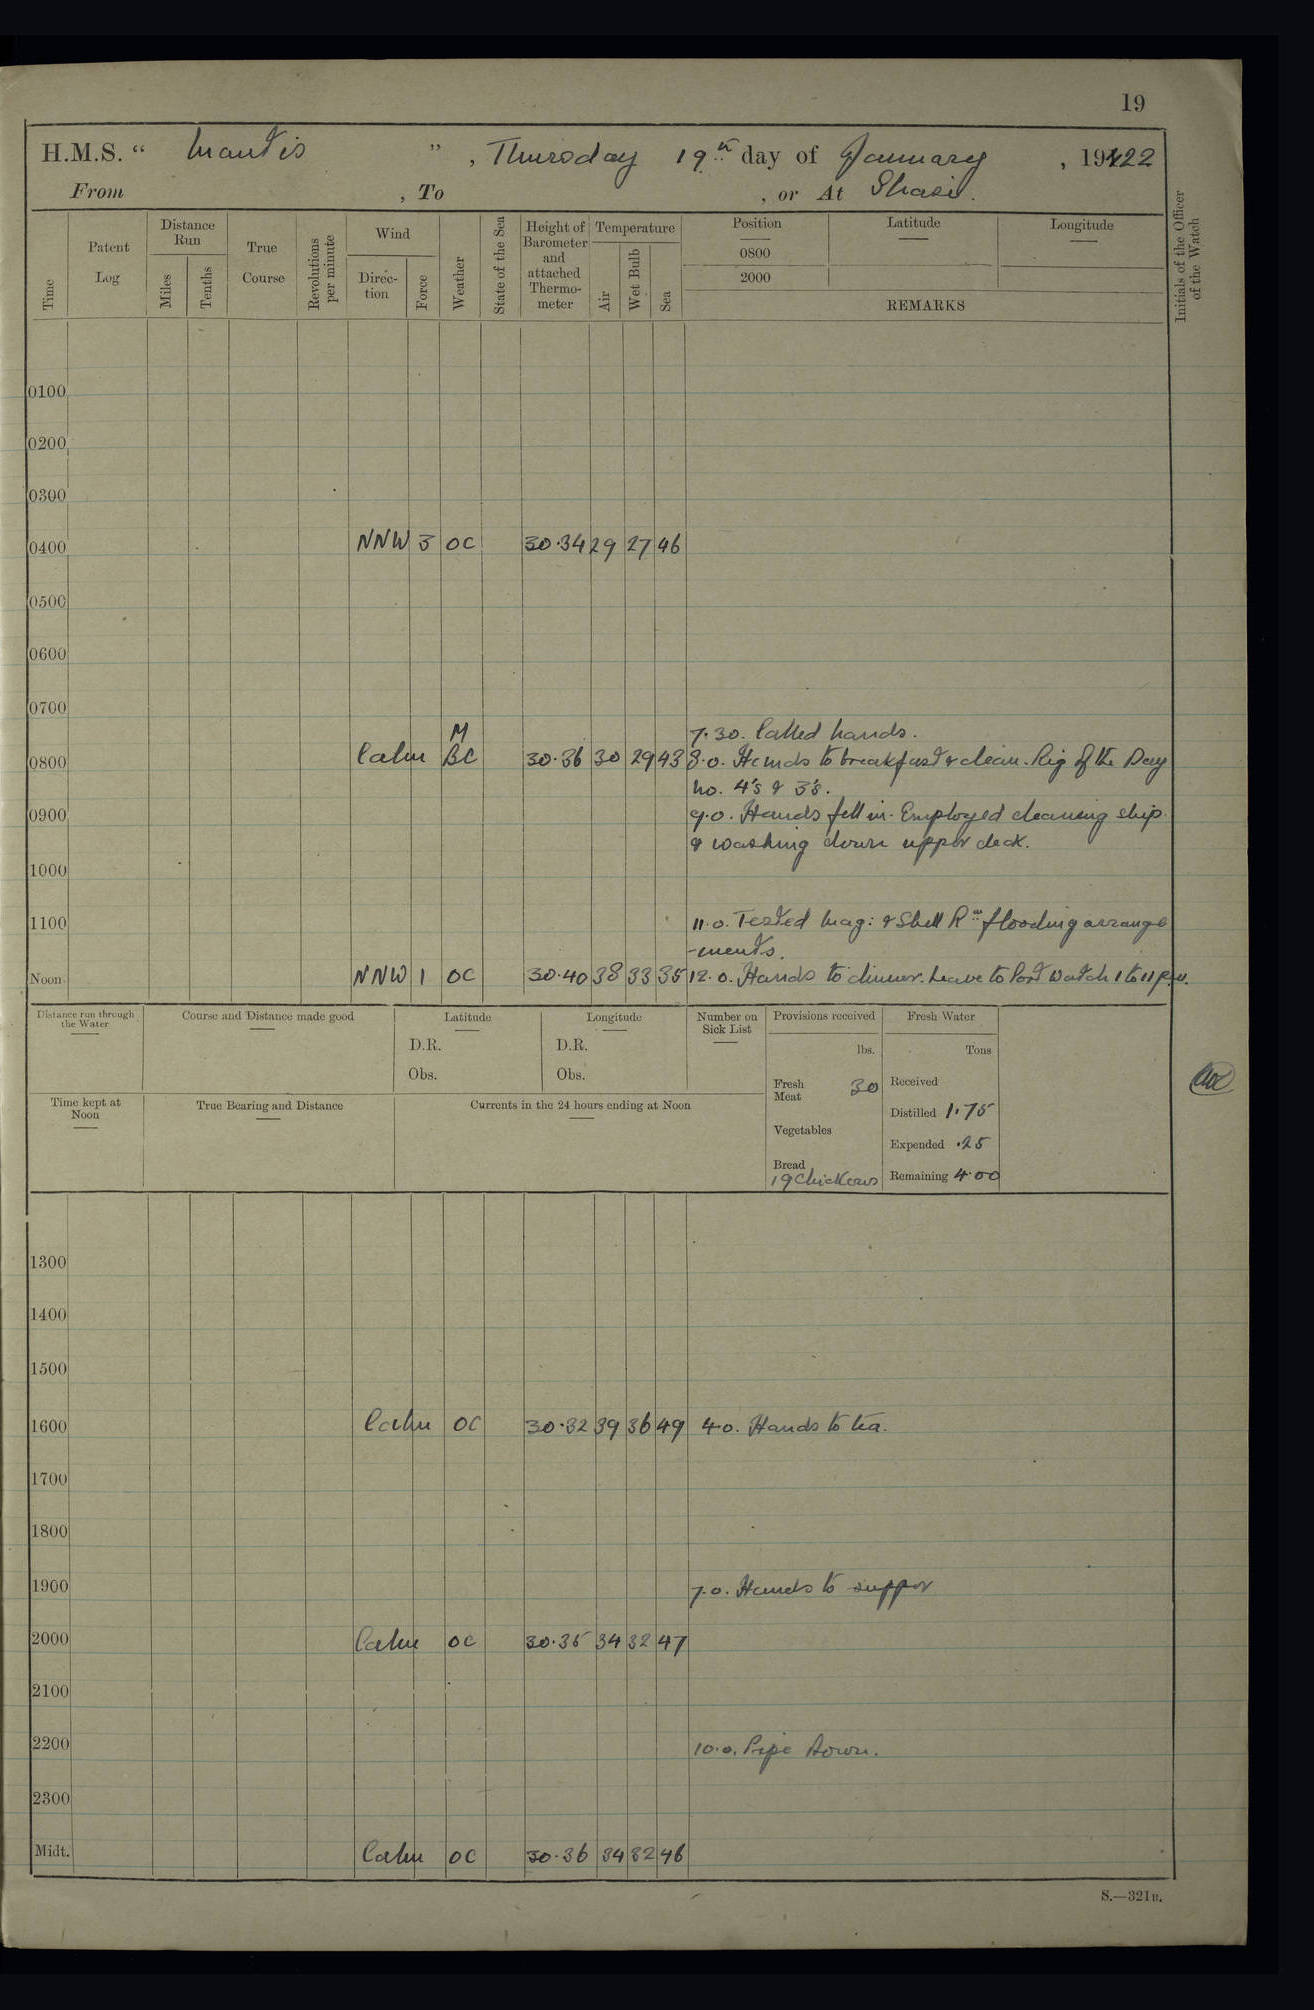 19
H.M.S. “ Mantis ” , Thursday 19th day of January , 1922
From , To , or At Shasi.
Time Patent Log Distance Run Miles Tenths True Course Revolutions per minute Wind Direc-tion Force Weather State of the Sea Height of Barometer and attached Thermo-meter Temperature Air Wet Bulb Sea Position 0800 2000 Latitude Longitude
REMARKS
Initials of the Officer of the Watch
0100
0200
0300
0400 NNW 3 OC 30·34 29 27 46
0500
0600
0700
7·30. Called hands.
M
0800 Calm BC 30·36 30 29 43 8·0. Hands to breakfast & clean. Rig of the Day
No. 4's & 3's.
0900 9·0. Hands fell in. Employed cleaning ship
& washing down upper deck.
1000
1100 11·0. Tested Mag: & Shell Rm flooding arrange
-ments.
Noon NNW 1 OC 30·40 38 33 35 12·0. Hands to dinner. Leave to Port Watch 1 to 11 p.m.
Distance run through the Water Course and Distance made good Latitude Longitude Number on Sick List Provisions received Fresh Water
lbs. Tons
D.R. D.R.
Obs. Obs.
Fresh Meat 30 Received
Time kept at Noon True Bearing and Distance Currents in the 24 hours ending at Noon
Distilled 1·75
Vegetables
Expended ·25
Bread
19 Chickens Remaining 4·00
1300
1400
1500
1600 Calm OC 30·32 39 36 49 4·0. Hands to tea.
1700
1800
1900 7·0. Hands to supper
2000 Calm OC 30·35 34 32 47
2100
2200 10·0. Pipe Down.
2300
Midt. Calm OC 30·36 34 32 46
S.—321B.